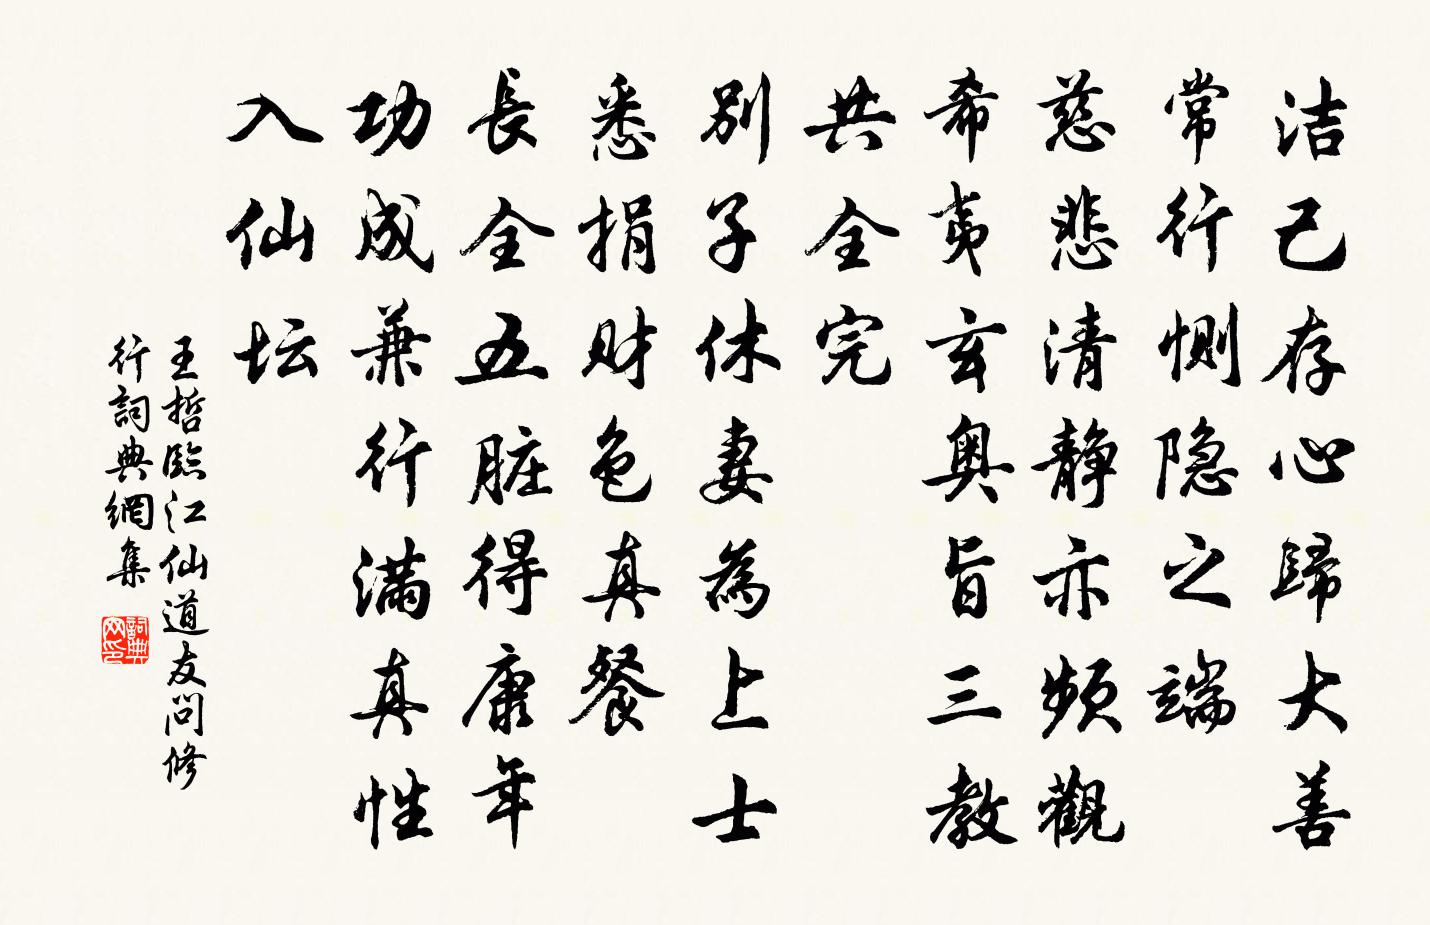 洁己存心歸大善
常行惻隐之端
慈悲清靜亦頻觀
希夷玄奥旨三教
共全完
別子休妻為上士
悉捐财色真餐
長全五脏得康年
功成兼行滿真性
入仙坛
王哲臨江仙道友問修
行詞典網集
詞典网印